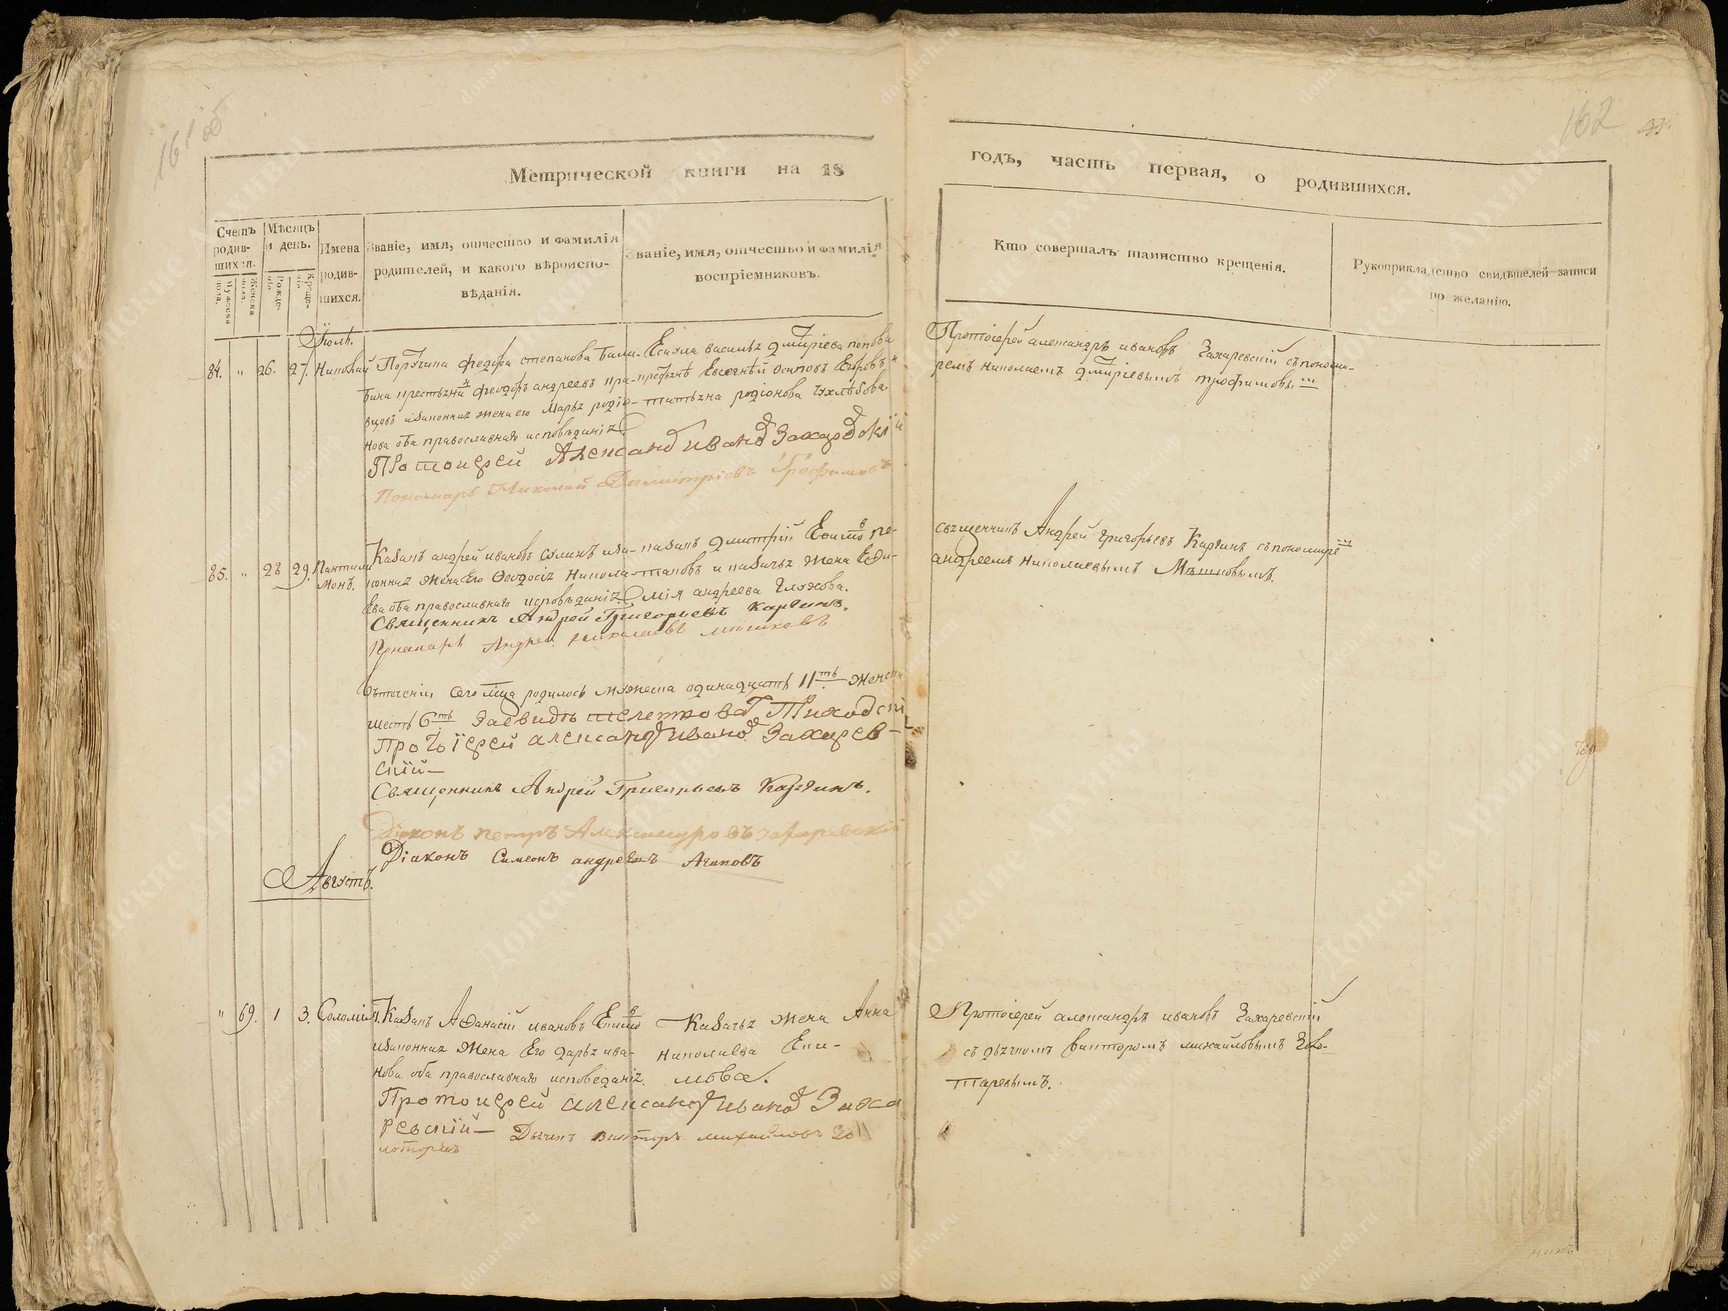 161 об
162
Метрической книги на 18
годъ, часть первая, о родившихся.
Счетъ родив-
шихся.
Мужеска пола.
Женска пола.
Мѣсяцъ и день.
Рожде-
нія.
Креще-
нія.
Имена
родив-
шихся.
Званіе, имя, отчество и фамилія
родителей, и какого вѣроиспо-
вѣданія.
Званіе, имя, отчество и фамилія
воспріемниковъ.
Кто совершалъ таинство крещенія.
Рукоприкладство свидѣтелей записи
по желанію.
Іюль.
84. " 26. 27. Николай
Порутчика Федора степанова
крестьянинъ феодоръ андреевъ при-
вцовъ изаконная жена его Марья родіо-
нова оба православнаго исповѣданія
Есаула василья дмитріева попова
Евсевій Осиповъ Егоровъ и
татьяна родіонова
Протоіерей александръ ивановъ Захаревскій съ понома-
ремъ николаемъ дмитріевымъ трофимовы
Протоиерей Александ Иванов Захаревский
Пономарь Николай Дмитріевъ Трофимовъ
85. " 28 29. Пантелей
монъ.
Казакъ андрей ивановъ сулинъ иза-
конная жена Его Феодосія Никола-
Ева оба православнаго исповѣданія
казакъ дмитрій
и казачья жена Евди-
мія андреева Глухова.
священникъ Андрей григорьевъ Каргинъ съ пономаре
андреемъ николаевымъ Мѣшковымъ.
Священникъ Андрей Григорьевъ Каргинъ.
Пономарь Андрей николаевъ мѣшковъ
Втеченіи сего мца родилось мужеска одинадцать 11ть женска
шесть 6ть
Протоіерей александ Иванов Захарев-
ский
Священникъ Андрей Григорьевъ Каргинъ.
Діаконъ петръ Александровъ захаревскій
Діаконъ Симеонъ андреевъ Агаповъ
Августъ.
" 69. 1 3. Соломія.
Казакъ Афанасій ивановъ
изаконная жена Его дарья ива-
нова оба православнаго исповеданія.
Казачья жена Анна
николаева Еки-
мова.
Протоіерей александръ ивановъ Захаревскій
съ дьячкомъ викторомъ михайловымъ Золо-
таревымъ.
Протоиерей александ Иванов Заха
ревский Дьячекъ викторъ михайловъ Зо
лотаревъ
Донские Архивы
donarch.ru